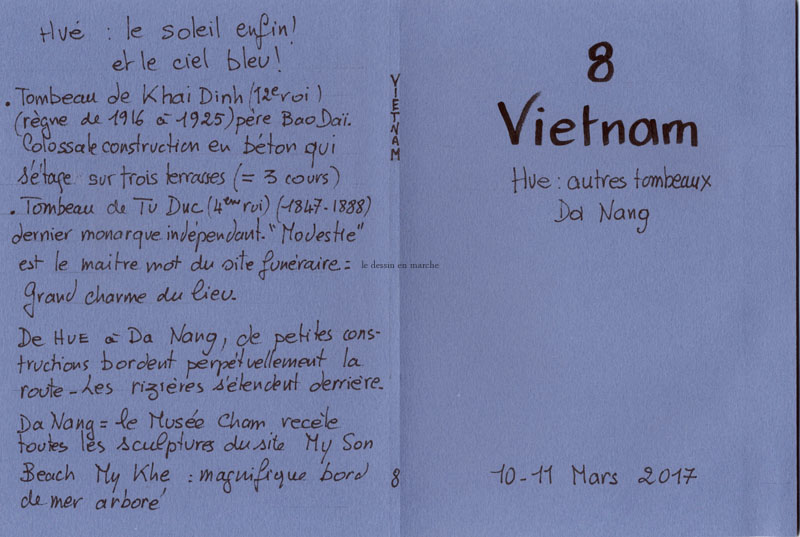 Hué : le soleil enfin!
et le ciel bleu!
• Tombeau de Khai Dinh (12e roi)
(règne de 1916 à 1925) père Bao Daï.
Colossale construction en béton qui
s'étage sur trois terrasses (= 3 cours)
• Tombeau de Tu Duc (4eme roi) (-1847-1888)
dernier monarque indépendant. "Modestie"
est le maitre mot du site funéraire =
Grand charme du lieu.
De HUE à Da Nang, de petites cons-
tructions bordent perpétuellement la
route - Les rizières s'étendent derrière.
Da Nang = le Musée Cham recèle
toutes les sculptures du site My Son
Beach My Khe : magnifique bord
de mer arboré
VIETNAM
8
le dessin en marche
8
Vietnam
Hue : autres tombeaux
Da Nang
10-11 Mars 2017